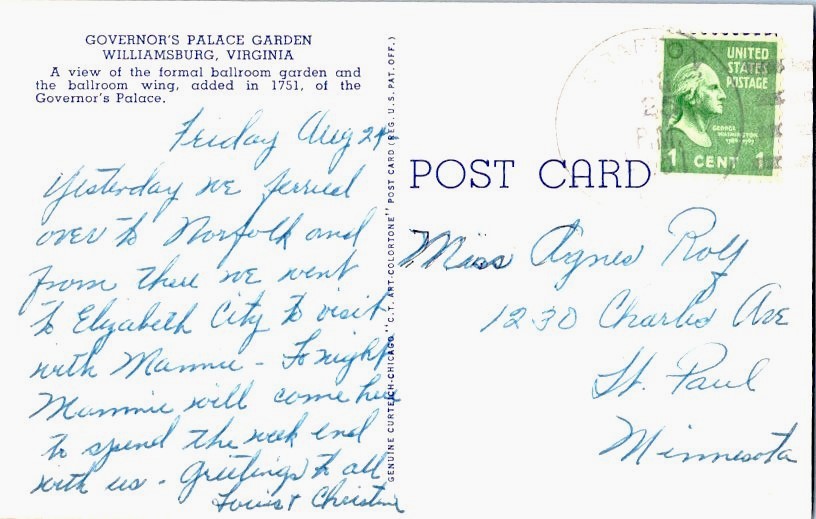 GOVERNOR'S PALACE GARDEN
WILLIAMSBURG, VIRGINIA
A view of the formal ballroom garden and
the ballroom wing, added in 1751, of the
Governor's Palace.
Friday Aug 24
Yesterday we ferried
over to Norfolk and
from there we went
to Elizabeth City to visit
with Mannie - Tonight
Mannie will come here
to spend the week end
with us - Greetings to all
Louis & Christine
GENUINE CURTEICH-CHICAGO "C.T. ART-COLORTONE" POST CARD (REG. U.S. PAT. OFF.)
POST CARD
UNITED
STATES
POSTAGE
GEORGE
WASHINGTON
1789-1797
1 CENT 1
Miss Agnes Rolf
1230 Charles Ave
St. Paul
Minnesota